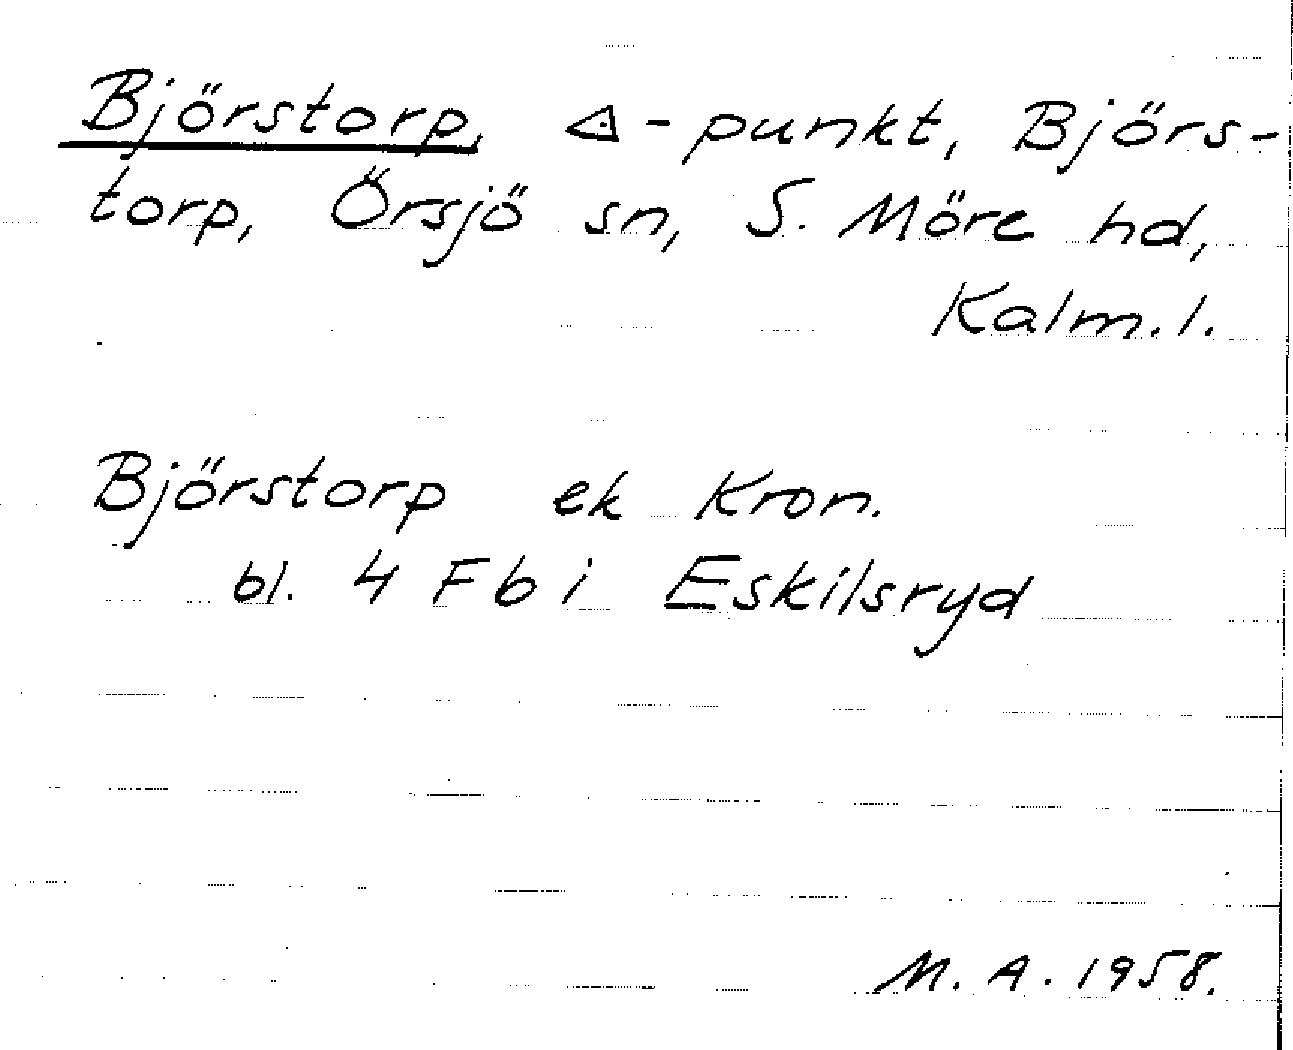 Björstorp, △-punkt, Björs-
torp, Örsjö sn, S. Möre hd,
Kalm. l.
Björstorp ek Kron.
bl. 4 F b i Eskilsryd
M. A. 1958.